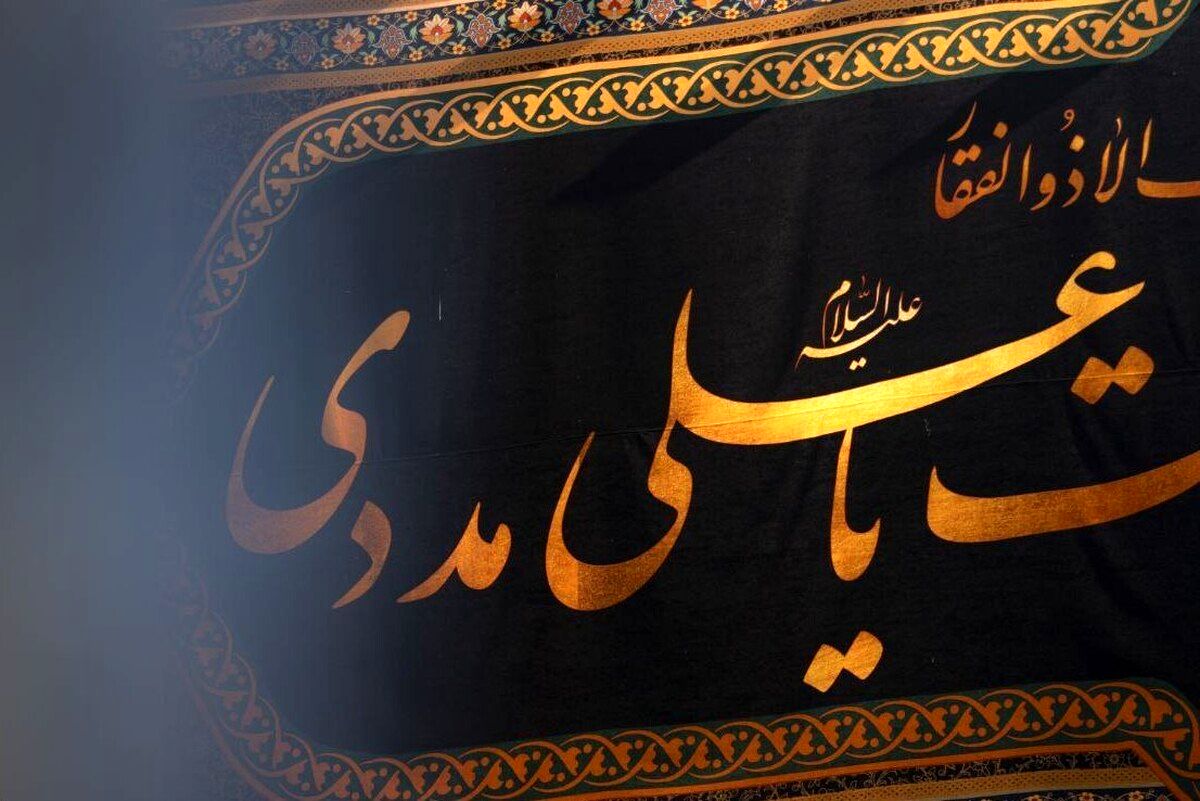 الا ذُوالفقار
علیه السّلام
یا علی مددی